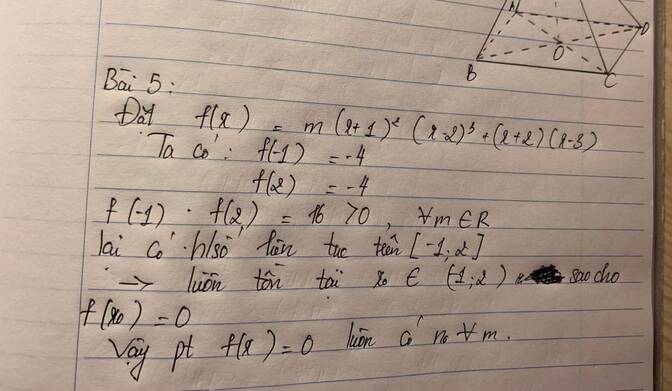 A
D
O
B
C
Bài 5:
Đặt f(x) = m (x+1)² (x-2)³ + (x+2)(x-3)
Ta có: f(-1) = -4
f(2) = -4
f(-1) . f(2) = 16 > 0, ∀m ∈ R
lại có h/số liên tục trên [-1; 2]
→ luôn tồn tại x₀ ∈ (-1; 2) sao cho
f(x₀) = 0
Vậy pt f(x) = 0 luôn có no ∀m.